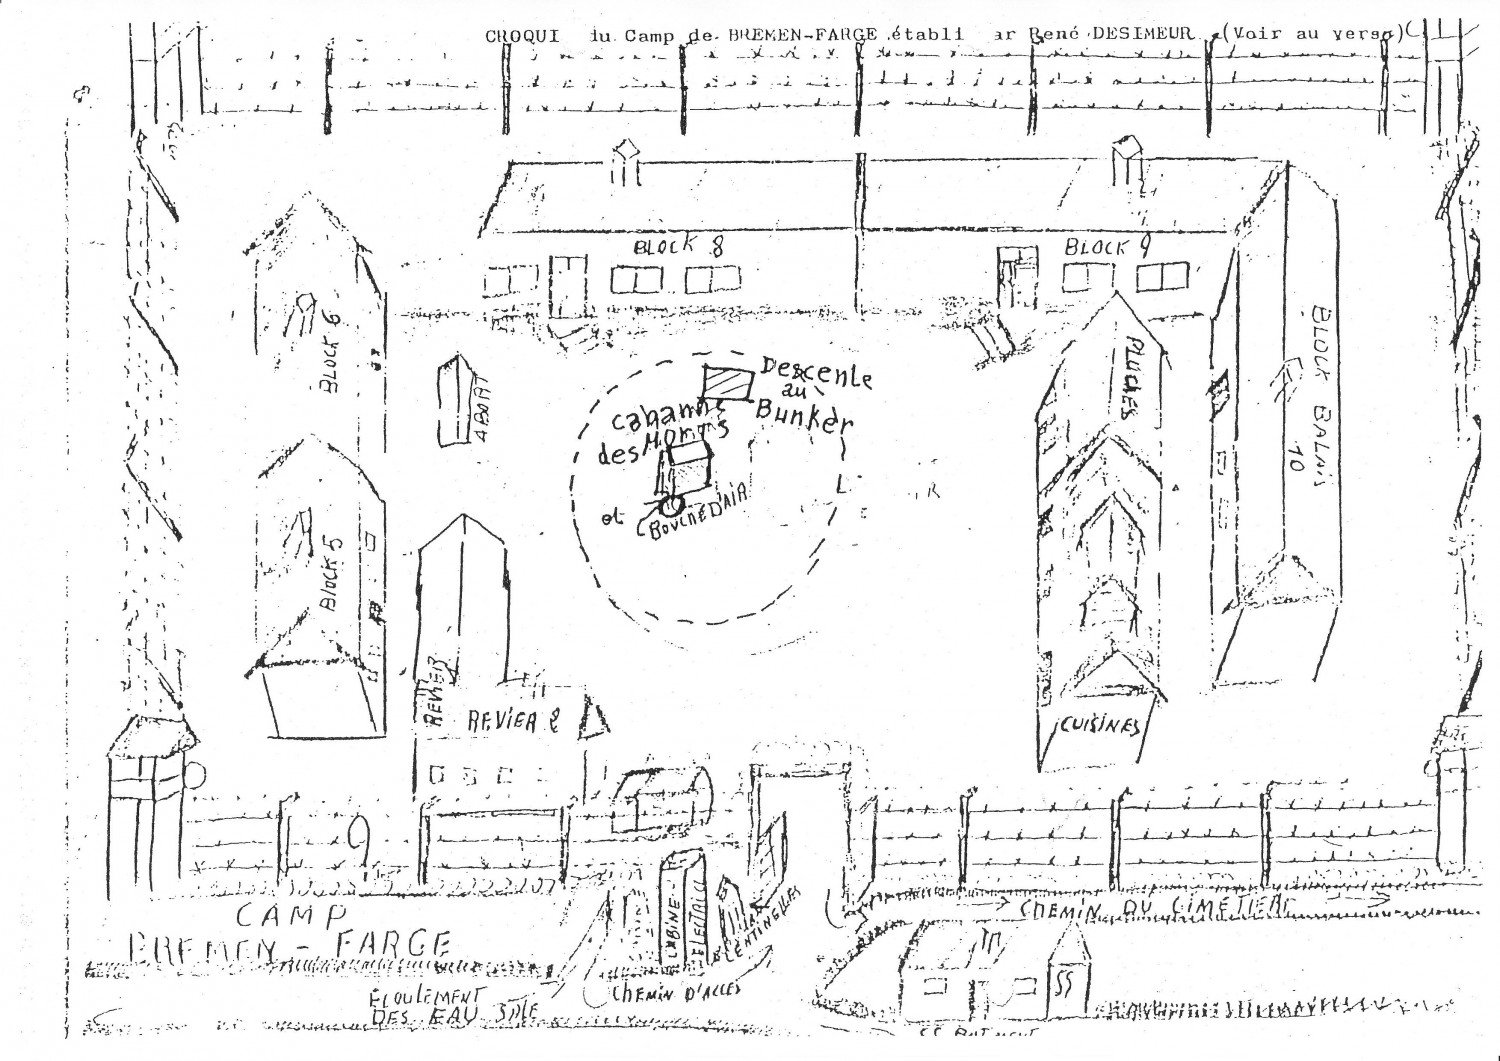 CROQUI du Camp de BREMEN-FARGE établi par René DESIMEUR (Voir au verso)
BLOCK 8
BLOCK 9
BLOCK 6
ABORT
Descente
au
Bunker
cabanne
des Momms
et BOUCHE D'AIR
PLUCHES
BLOCK BALNIS
10
BLOCK 5
REVIER
REVIER 2
CUISINES
CABINE
ELECTRICE
SENTINELLES
CHEMIN DU CIMETIERE
CAMP
BREMEN - FARGE
ECOULEMENT
DES EAU SALE
CHEMIN D'ACCES
SS
SS BATIMENT